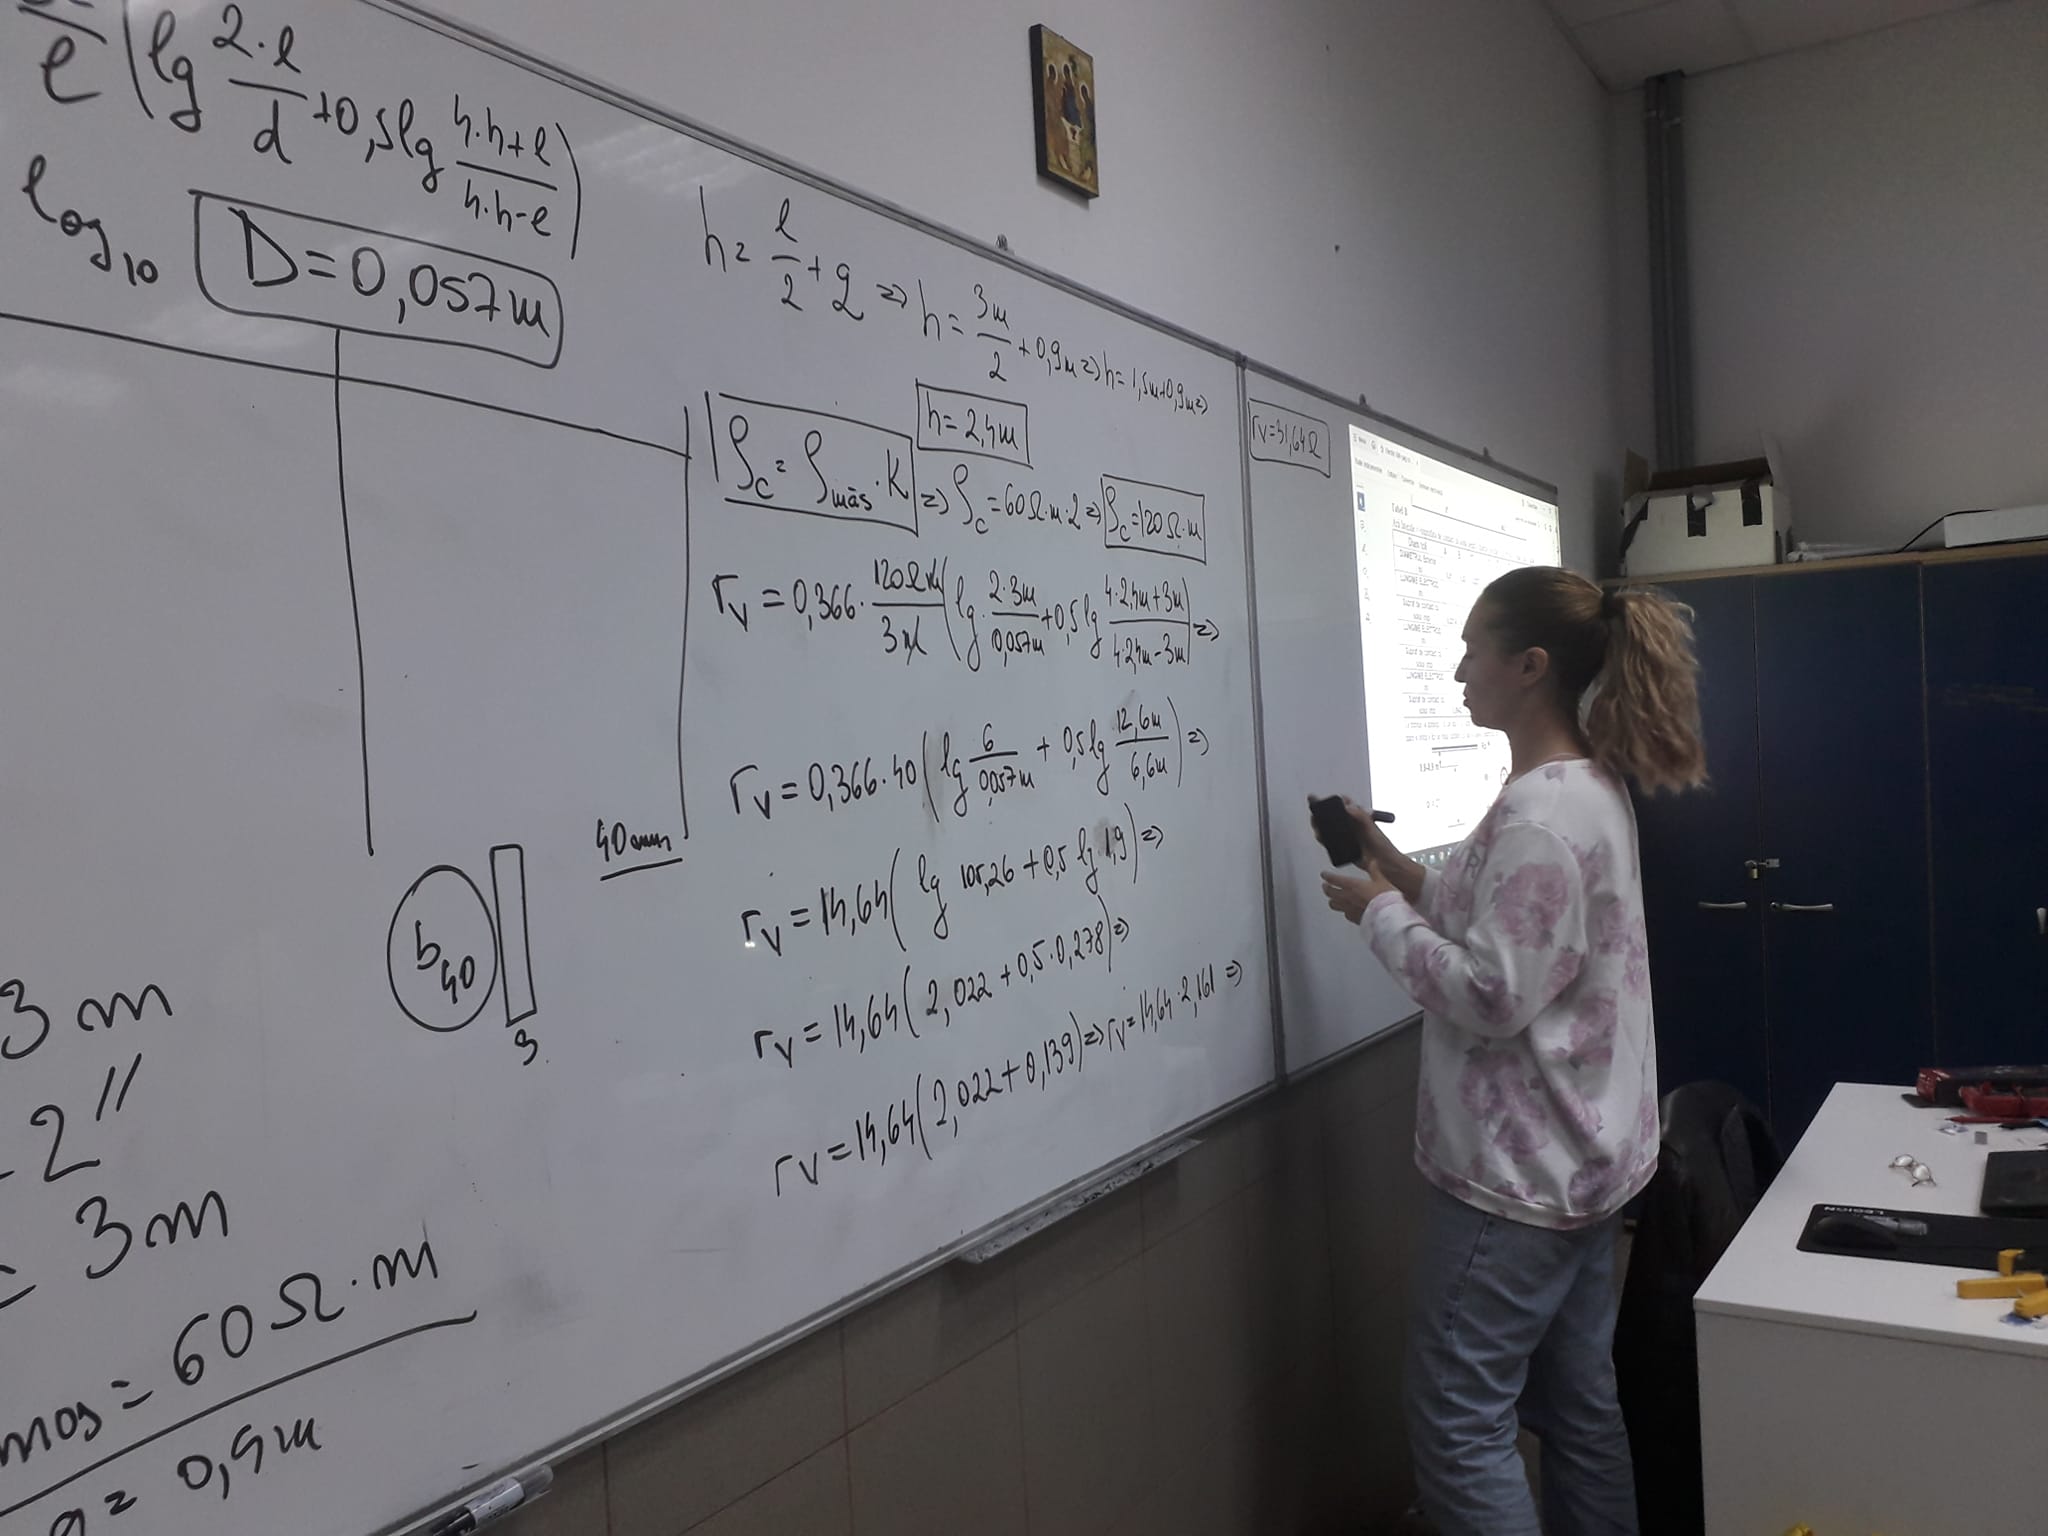 e (lg 2·l/d +0,5lg 4·h+l/4·h-l)
log10
D=0,057m
h= l/2 + q => h= 3m/2 +0,9m => h= 1,5m+0,9m =>
h= 2,4m
ρc = ρmăs · K => ρc =60Ω·m·2 => ρc =120Ω·m
rv =0,366· 120Ωm/3m (lg 2·3m/0,057m +0,5lg 4·2,4m+3m/4·2,4m-3m) =>
rv =0,366·40( lg 6/0,057m + 0,5lg 12,6m/6,6m ) =>
rv =14,64( lg 105,26 +0,5 lg 1,9) =>
rv =14,64( 2,022 +0,5·0,278) =>
rv =14,64( 2,022+0,139) => rv =14,64·2,161 =>
rv =31,64Ω
40mm
b40
3
3 m
2"
= 3m
mas = 60Ω·m
q= 0,9m
Tabel 8
LEGION